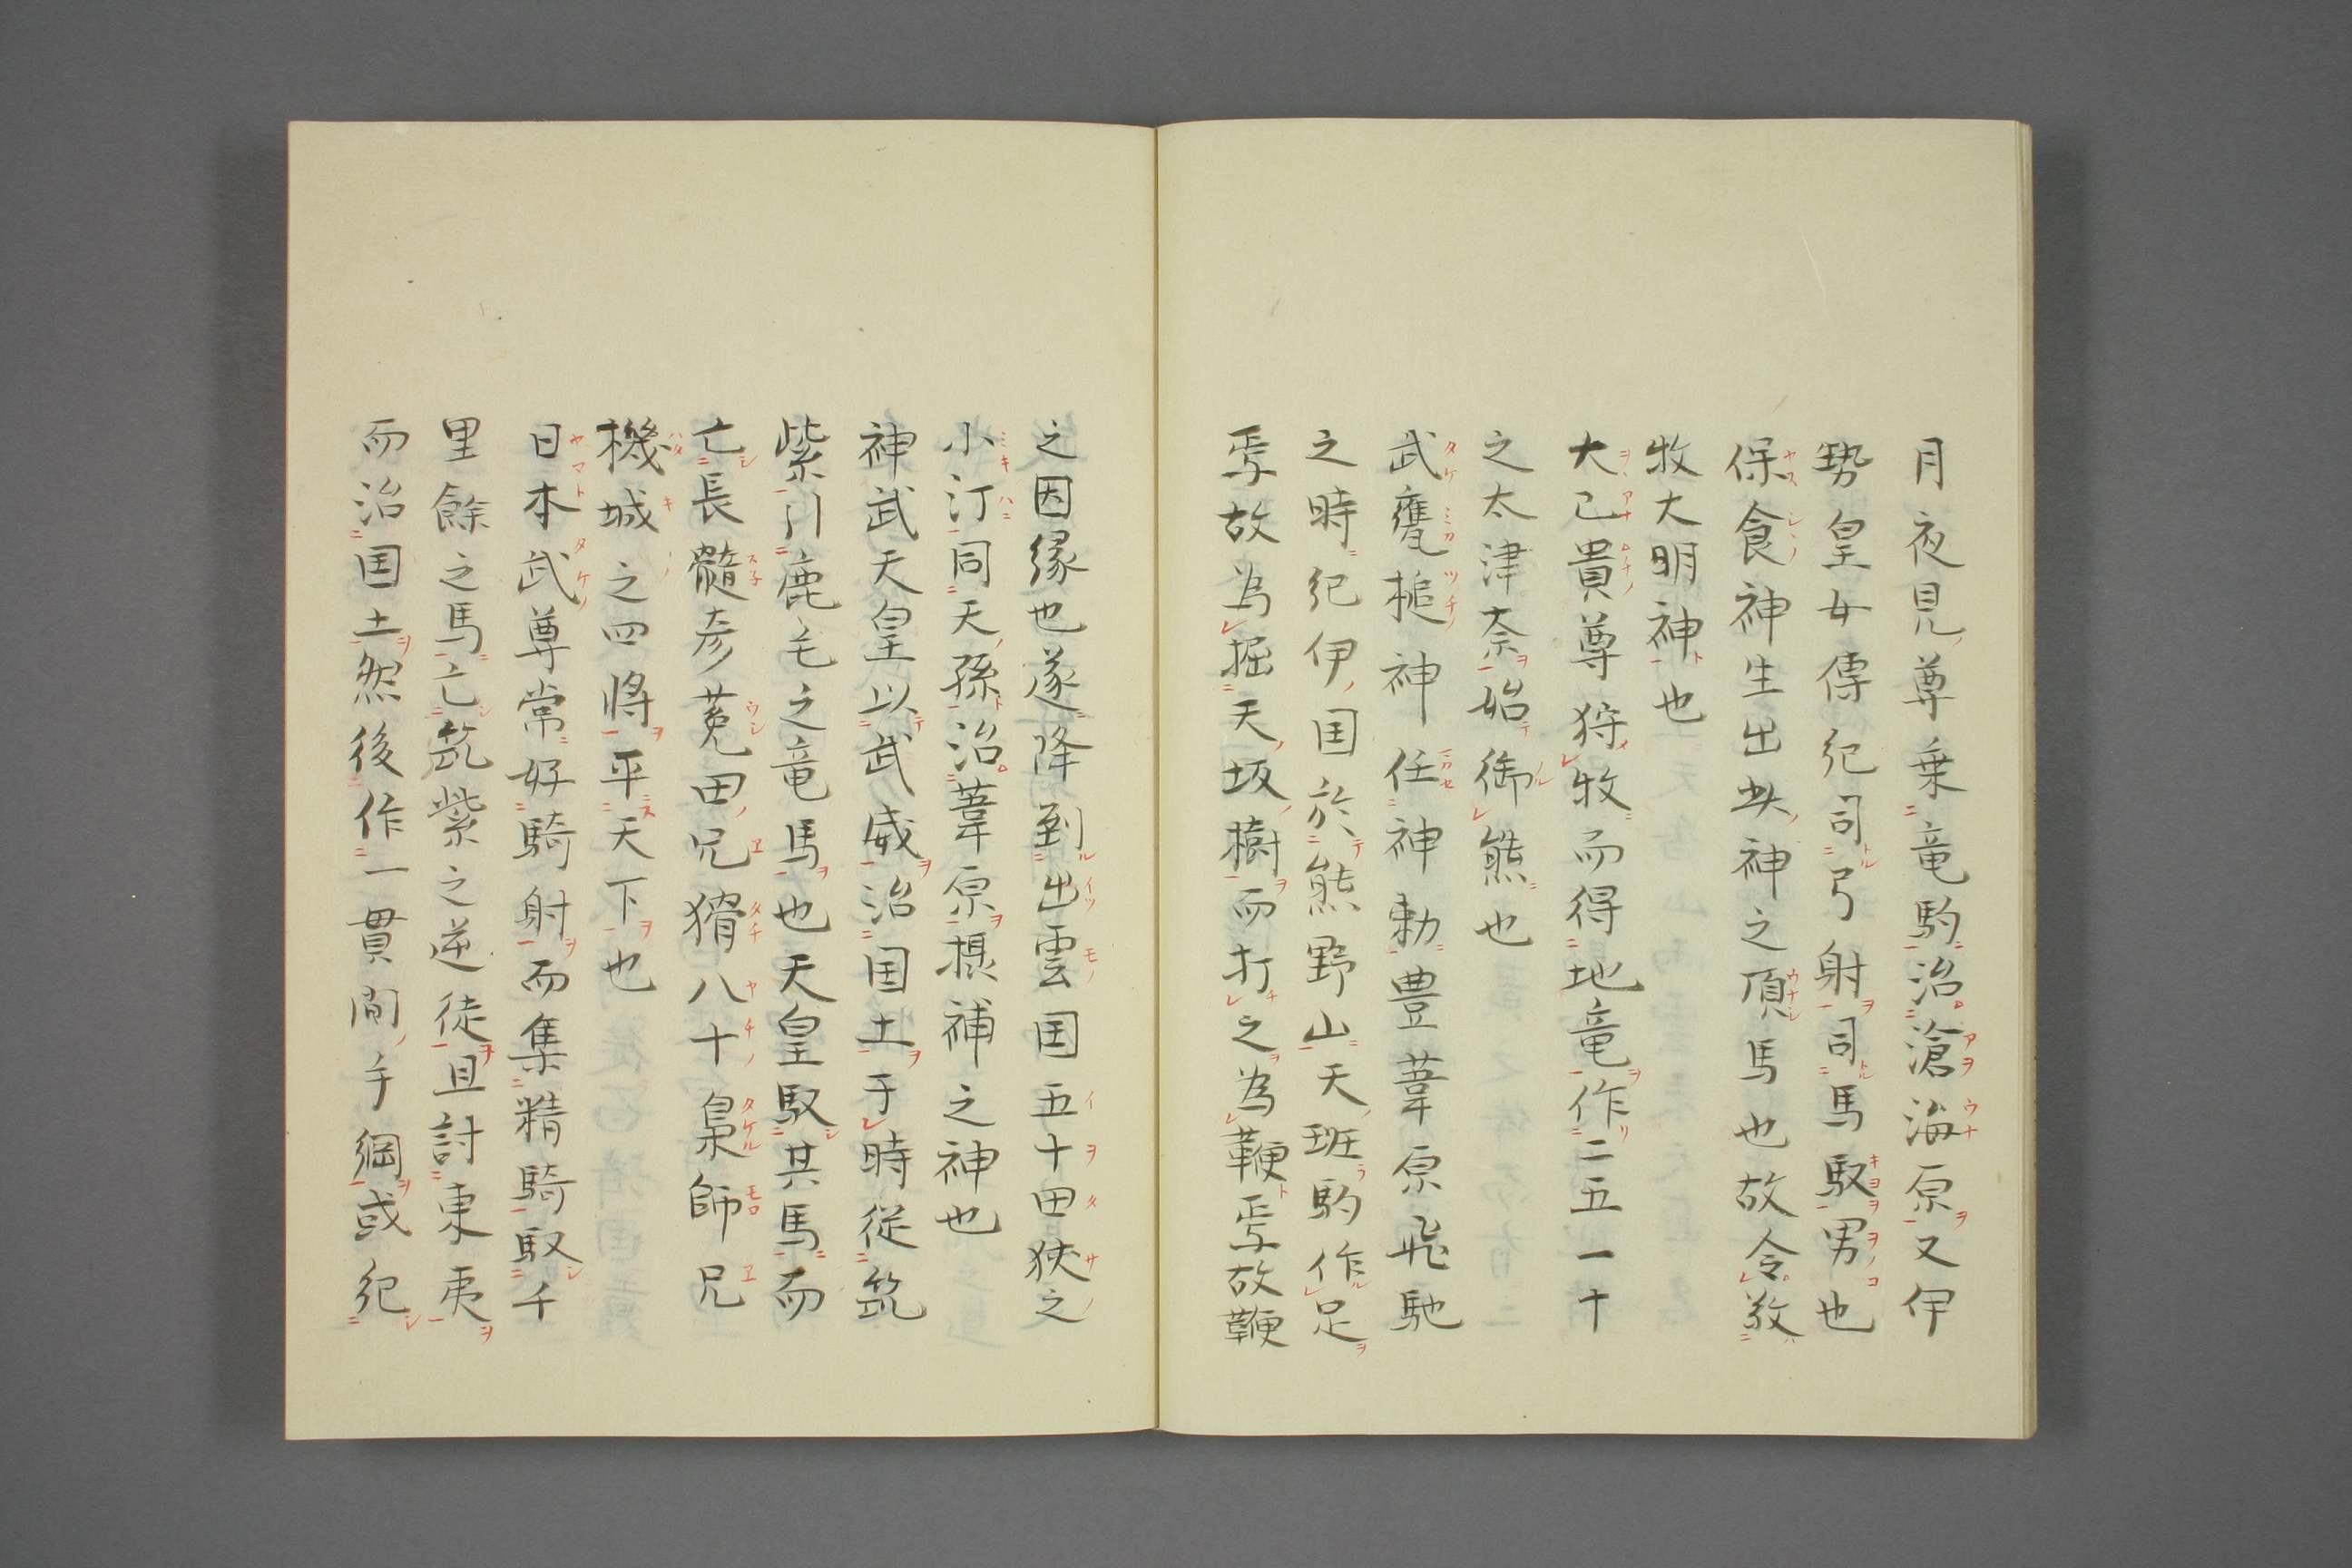 月夜見尊乗竜駒治滄海原又伊
勢皇女傳紀司弓射司馬馭男也
保食神生出此神之頂馬也故令敬
牧大明神也
大己貴尊狩牧而得地竜作二五一十
之太津奈始御熊也
武甕槌神任神勅豊葦原飛馳
之時紀伊国於熊野山天班駒作足
焉故為掘天坂樹而打之為鞭焉故鞭
之因縁也遂降到出雲国五十田狭之
小汀同天孫治葦原摂補之神也
神武天皇以武威治国土于時従筑
紫引鹿毛之竜馬也天皇馭其馬而
亡長髄彦菟田兄猾八十梟師兄
機城之四将平天下也
日本武尊常好騎射而集精騎馭千
里餘之馬亡筑紫之逆徒且討東夷
而治国土然後作一貫間手綱或紀